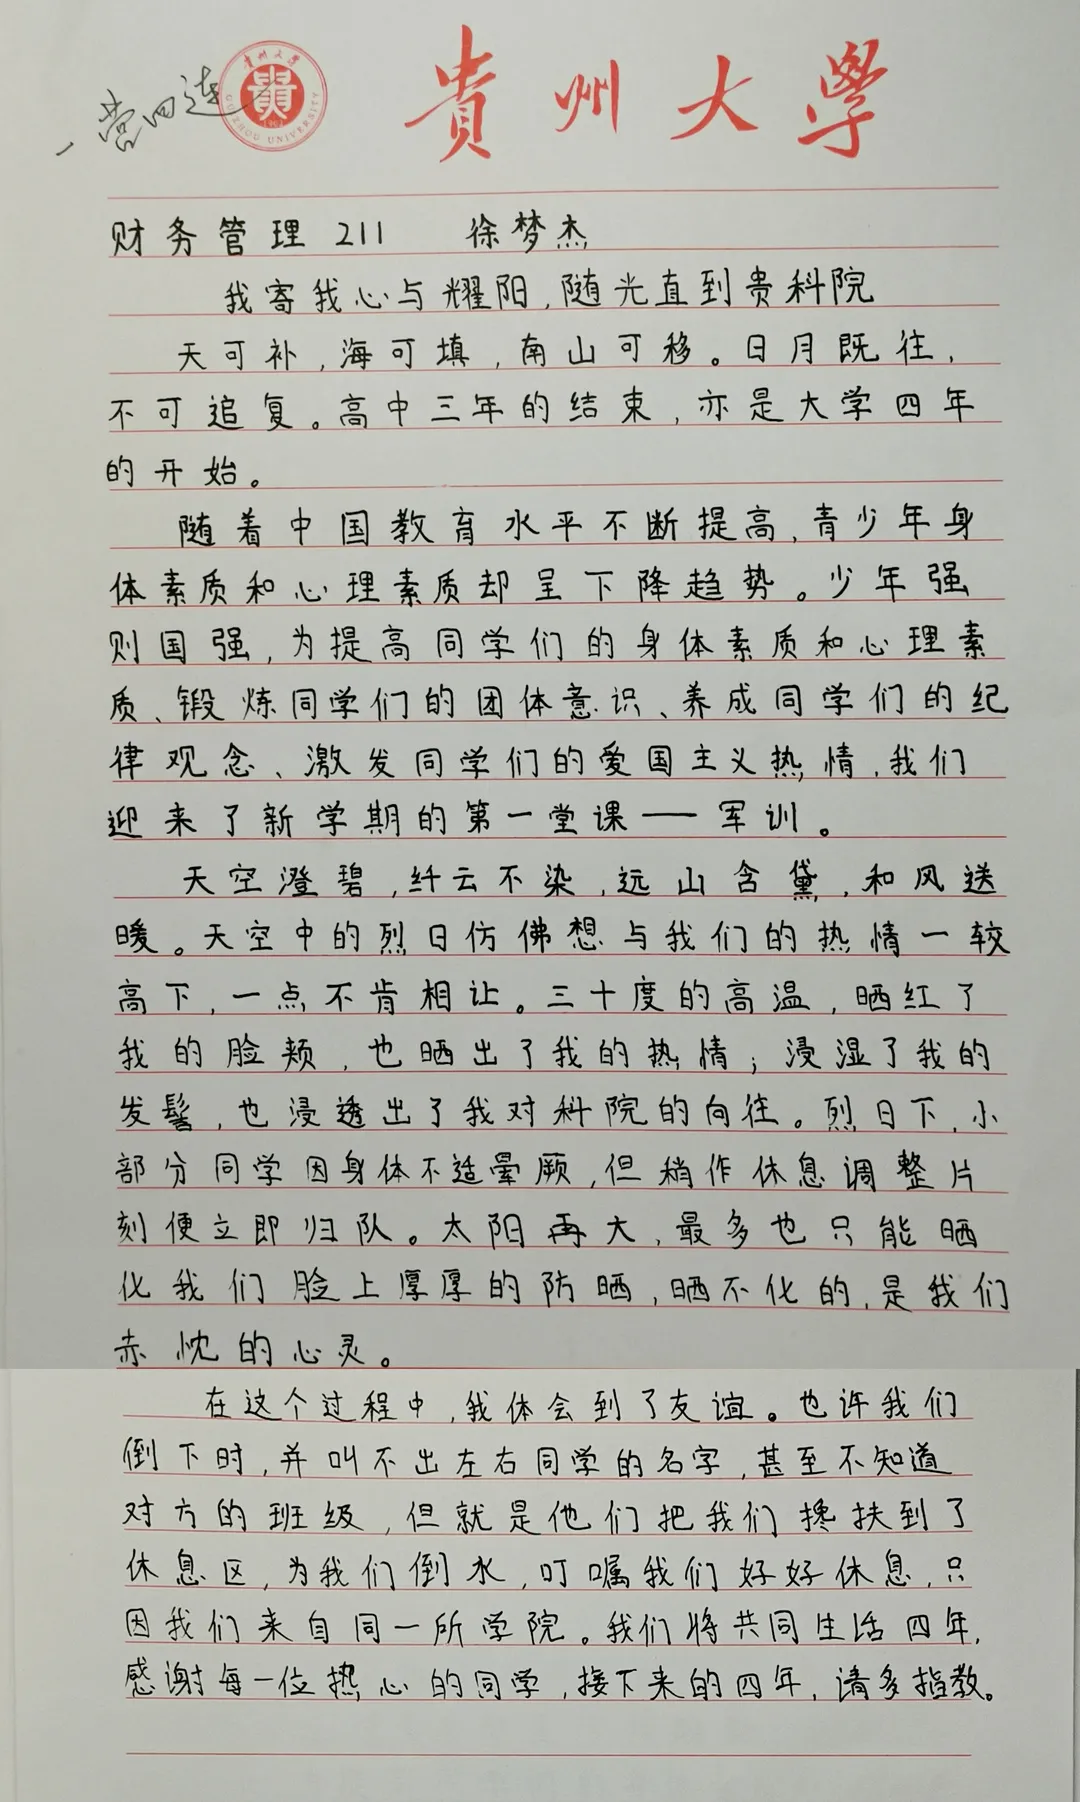 一营四连
貴州大學
貴州大學
貴
1902
GUIZHOU UNIVERSITY
财务管理211 徐梦杰
我寄我心与耀阳,随光直到贵科院
天可补,海可填,南山可移。日月既往,
不可追复。高中三年的结束,亦是大学四年
的开始。
随着中国教育水平不断提高,青少年身
体素质和心理素质却呈下降趋势。少年强
则国强,为提高同学们的身体素质和心理素
质、锻炼同学们的团体意识、养成同学们的纪
律观念、激发同学们的爱国主义热情,我们
迎来了新学期的第一堂课——军训。
天空澄碧,纤云不染,远山含黛,和风送
暖。天空中的烈日仿佛想与我们的热情一较
高下,一点不肯相让。三十度的高温,晒红了
我的脸颊,也晒出了我的热情;浸湿了我的
发髻,也浸透出了我对科院的向往。烈日下,小
部分同学因身体不适晕厥,但稍作休息调整片
刻便立即归队。太阳再大,最多也只能晒
化我们脸上厚厚的防晒,晒不化的,是我们
赤忱的心灵。
在这个过程中,我体会到了友谊。也许我们
倒下时,并叫不出左右同学的名字,甚至不知道
对方的班级,但就是他们把我们搀扶到了
休息区,为我们倒水,叮嘱我们好好休息,只
因我们来自同一所学院。我们将共同生活四年,
感谢每一位热心的同学,接下来的四年,请多指教。